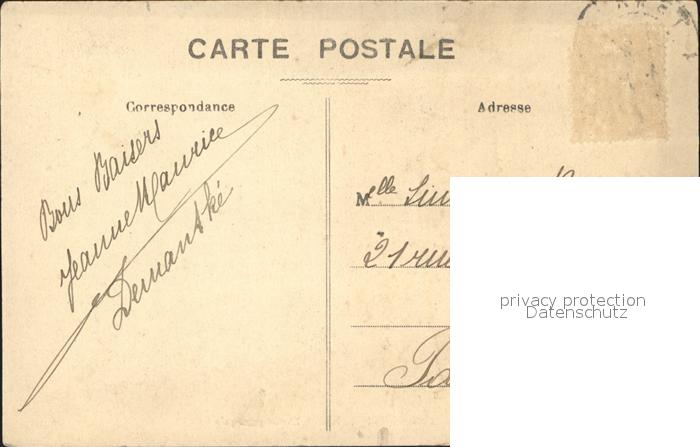 CARTE POSTALE
Correspondance
Adresse
Bons Baisers
Jeanne Maurice
Demantké
Melle
21 rue
privacy protection
Datenschutz